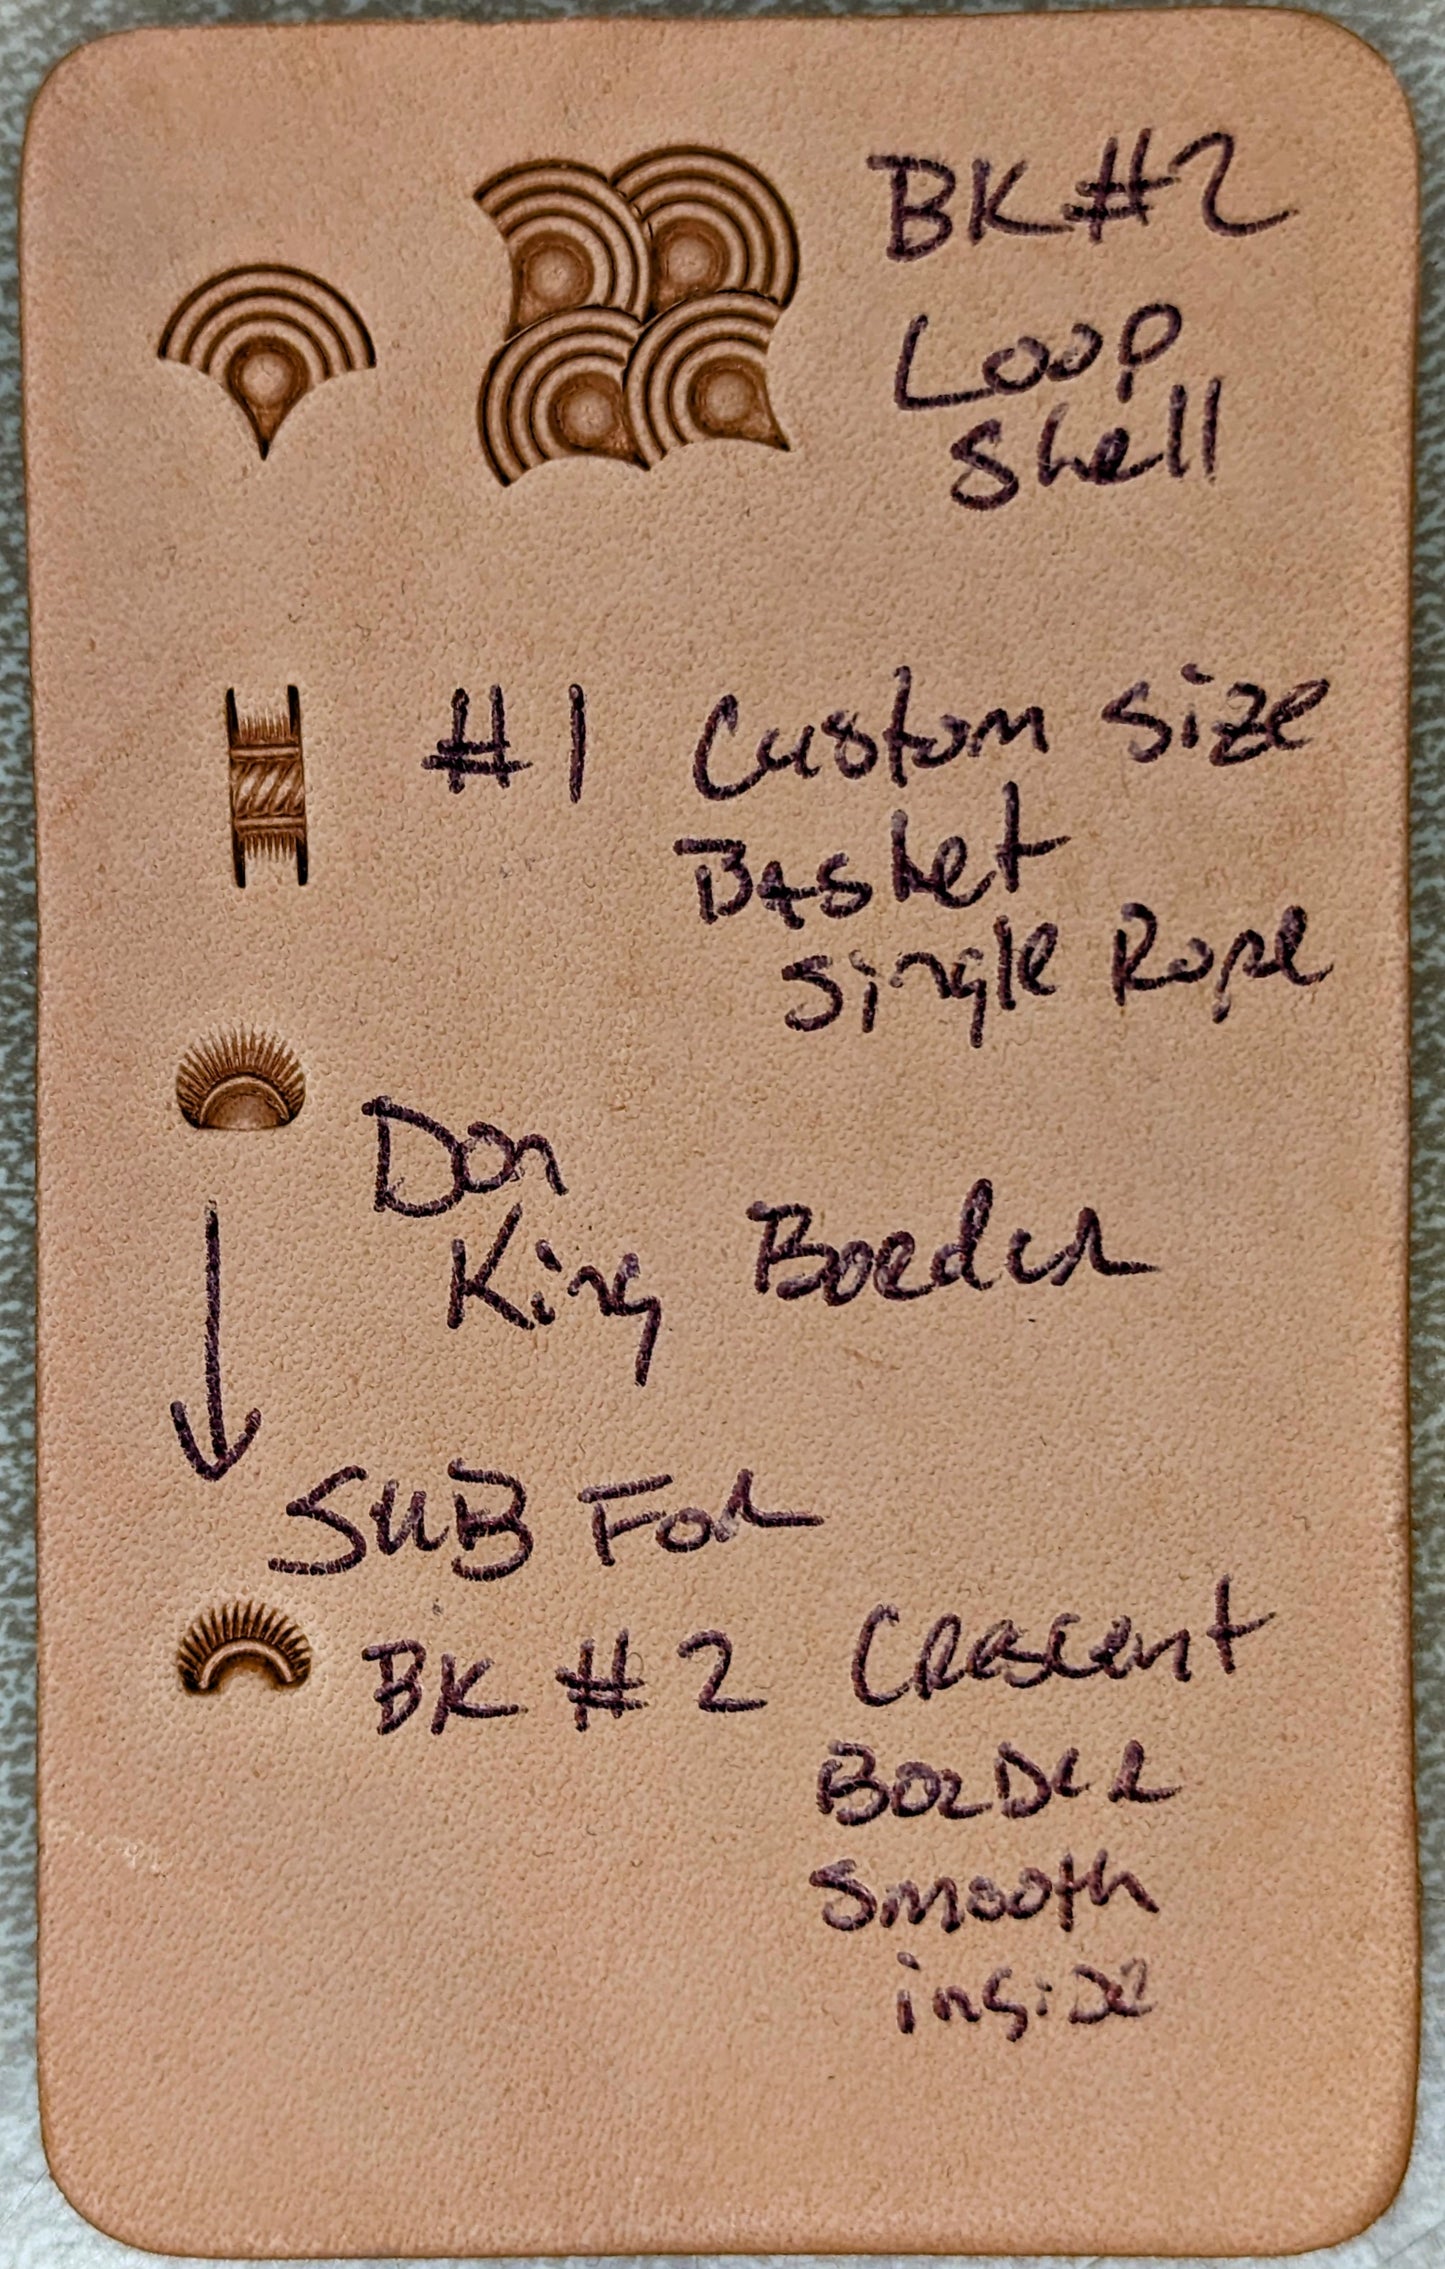 BK #2
Loop
Shell
#1 Custom Size
Basket
Single Rope
Don
King Border
SUB For
BK #2 Crescent
Border
Smooth
inside